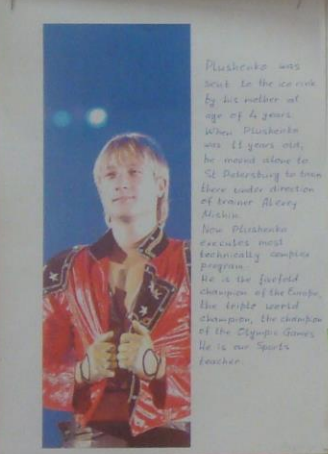 Plushenko was
sent to the ice rink
by his mother at
age of 4 years.
When Plushenko
was 11 years old,
he moved alone to
St Petersburg to train
there under direction
of trainer Alexey
Mishin.
Now Plushenko
executes most
technically complex
program.
He is the fivefold
champion of the Europe,
the triple world
champion, the champion
of the Olympic Games
He is our Sports
teacher.